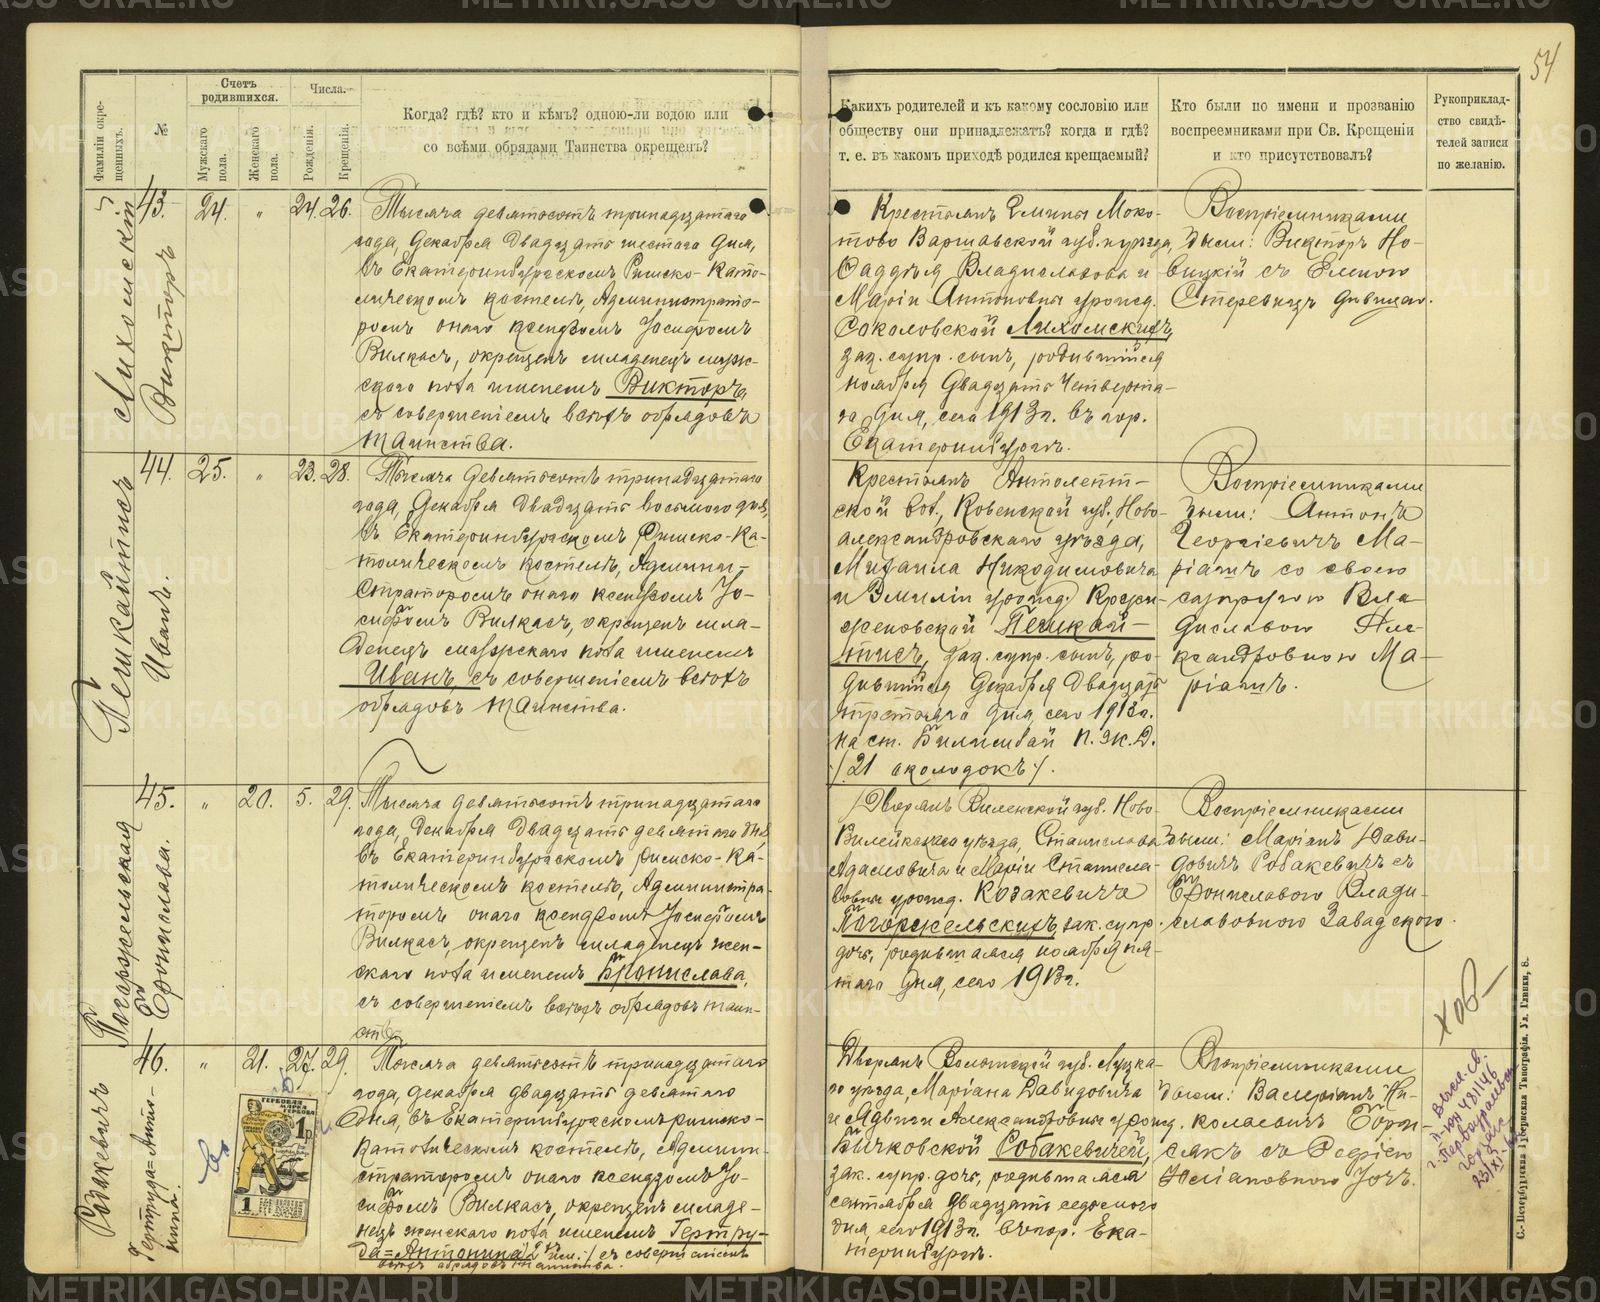 54
Фамиліи окрещенныхъ.
№
Счетъ родившихся.
Мужскаго пола.
Женскаго пола.
Числа.
Рожденія.
Крещенія.
Когда? гдѣ? кто и кѣмъ? одною-ли водою или
со всѣми обрядами Таинства окрещенъ?
Какихъ родителей и къ какому сословію или
обществу они принадлежатъ? когда и гдѣ?
т. е. въ какомъ приходѣ родился крещаемый?
Кто были по имени и прозванію
воспреемниками при Св. Крещеніи
и кто присутствовалъ?
Рукоприклад-
ство свидѣ-
телей записи
по желанію.
Лихомскій
Викторъ
43. 24. " 24. 26.
Тысяча девятьсотъ тринадцатаго
года, Декабря двадцать шестаго дня,
въ Екатеринбургскомъ Римско-Като-
лическомъ костелѣ, Администрато-
ромъ онаго ксендзомъ Іосифомъ
Вилкасъ, окрещенъ младенецъ муж-
скаго пола именемъ Викторъ,
съ совершеніемъ всѣхъ обрядовъ
таинства.
Крестьянъ Гмины Моко-
тово Варшавской губ. и уѣзда,
Фаддѣя Владиславова и
Маріи Антоновны урожд.
Соколовской Лихомскихъ,
зак. супр. сынъ, родившійся
ноября двадцать четверта-
го дня, сего 1913 г. въ гор.
Екатеринбургѣ.
Воспріемниками
были: Викторъ Но-
вицкій съ Еленою
Стеревичъ дѣвицею.
Пешкайтисъ
Иванъ.
44. 25. " 23. 28.
Тысяча девятьсотъ тринадцатаго
года, Декабря двадцать восьмого дня,
въ Екатеринбургскомъ Римско-Ка-
толическомъ костелѣ, Админи-
страторомъ онаго ксендзомъ Іо-
сифомъ Вилкасъ, окрещенъ мла-
денецъ мужскаго пола именемъ
Иванъ, съ совершеніемъ всѣхъ
обрядовъ таинства.
Крестьянъ Антолепт-
ской вол., Ковенской губ., Ново-
александровскаго уѣзда,
Михаила Никодимовича
и Эмиліи урожд.
Пешкай-
тисъ, зак. супр. сынъ, ро-
дившійся Декабря двадцать
третьяго дня, сего 1913 г.
на ст. Билимбай П. ж. д.
/21 околодокъ/.
Воспріемниками
были: Антонъ
Георгіевичъ Ма-
ріанъ со своею
супругою Вла-
диславою Але-
ксандровною Ма-
ріанъ.
Погоржельская
Бронислава.
45. " 20. 5. 29.
Тысяча девятьсотъ тринадцатаго
года, Декабря двадцать девятаго дня
въ Екатеринбургскомъ Римско-Ка-
толическомъ костелѣ, Администра-
торомъ онаго ксендзомъ Іосифомъ
Вилкасъ, окрещенъ младенецъ жен-
скаго пола именемъ Бронислава,
съ совершеніемъ всѣхъ обрядовъ таин-
ства.
Дворянъ Виленской губ. Ново-
Вилейскаго уѣзда, Станислава
Адамовича и Маріи Станисла-
вовны урожд. Козакевичъ
Погоржельскихъ, зак. супр.
дочь, родившаяся ноября пя-
таго дня, сего 1913 г.
Воспріемниками
были: Маріанъ Дави-
довичъ Робакевичъ съ
Брониславою Влади-
славовною Завадскою.
Робакевичъ
Гертруда=Анто-
нина.
46. " 21. 27. 29.
Тысяча девятьсотъ тринадцатаго
года, Декабря двадцать девятаго
дня, въ Екатеринбургскомъ римско-
католическомъ костелѣ, Админи-
страторомъ онаго ксендзомъ Іо-
сифомъ Вилкасъ, окрещенъ младе-
нецъ женскаго пола именемъ Гертру-
да=Антонина /2 им./ съ совершеніемъ
всѣхъ обрядовъ таинства.
Дворянъ Волынской губ. Луцка-
го уѣзда, Маріана Давидовича
и Ядвиги Александровны урожд.
Бычковской Робакевичей,
зак. супр. дочь, родившаяся
сентября двадцать седьмого
дня, сего 1913 г. въ гор. Ека-
теринбургѣ.
Воспріемниками
были: Валеріанъ Ни-
колаевичъ Бори-
сякъ съ Софіею
Юліановною Іочъ.
ГЕРБОВАЯ
МАРКА
1р
1
Выс. св.
г. Первоуральск
23/XI
С.-Петербургская Губернская Типографія. Ул. Глинки, 8.
METRIKI.GASO-URAL.RU